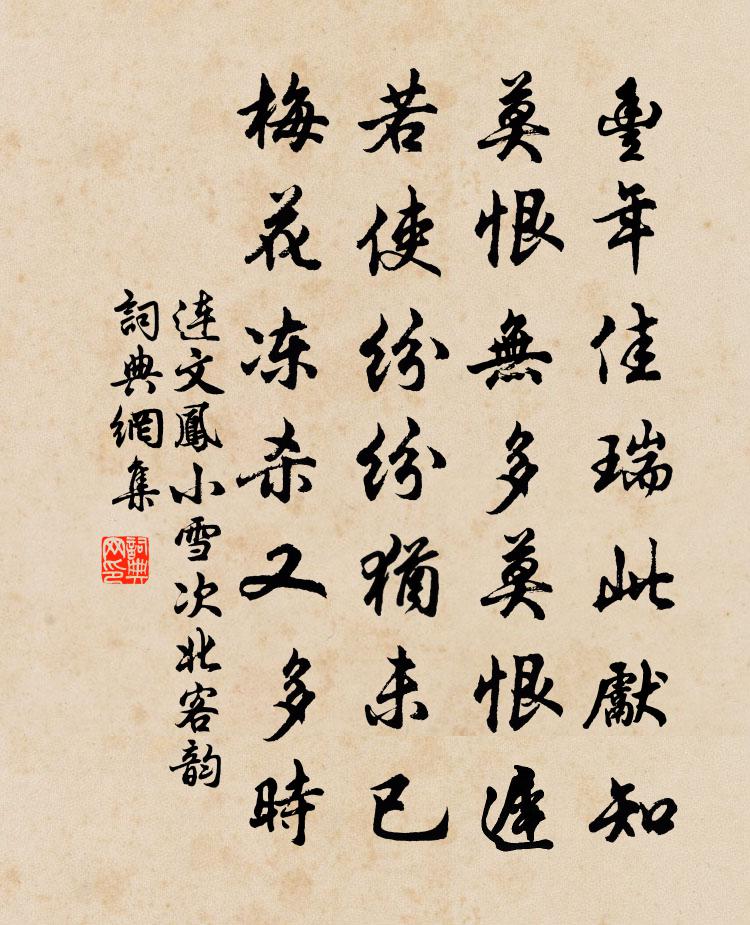 豐年佳瑞此獻知
莫恨無多莫恨遲
若使紛紛猶未已
梅花冻杀又多時
連文鳳小雪次北客韵
詞典網集
詞典
网印